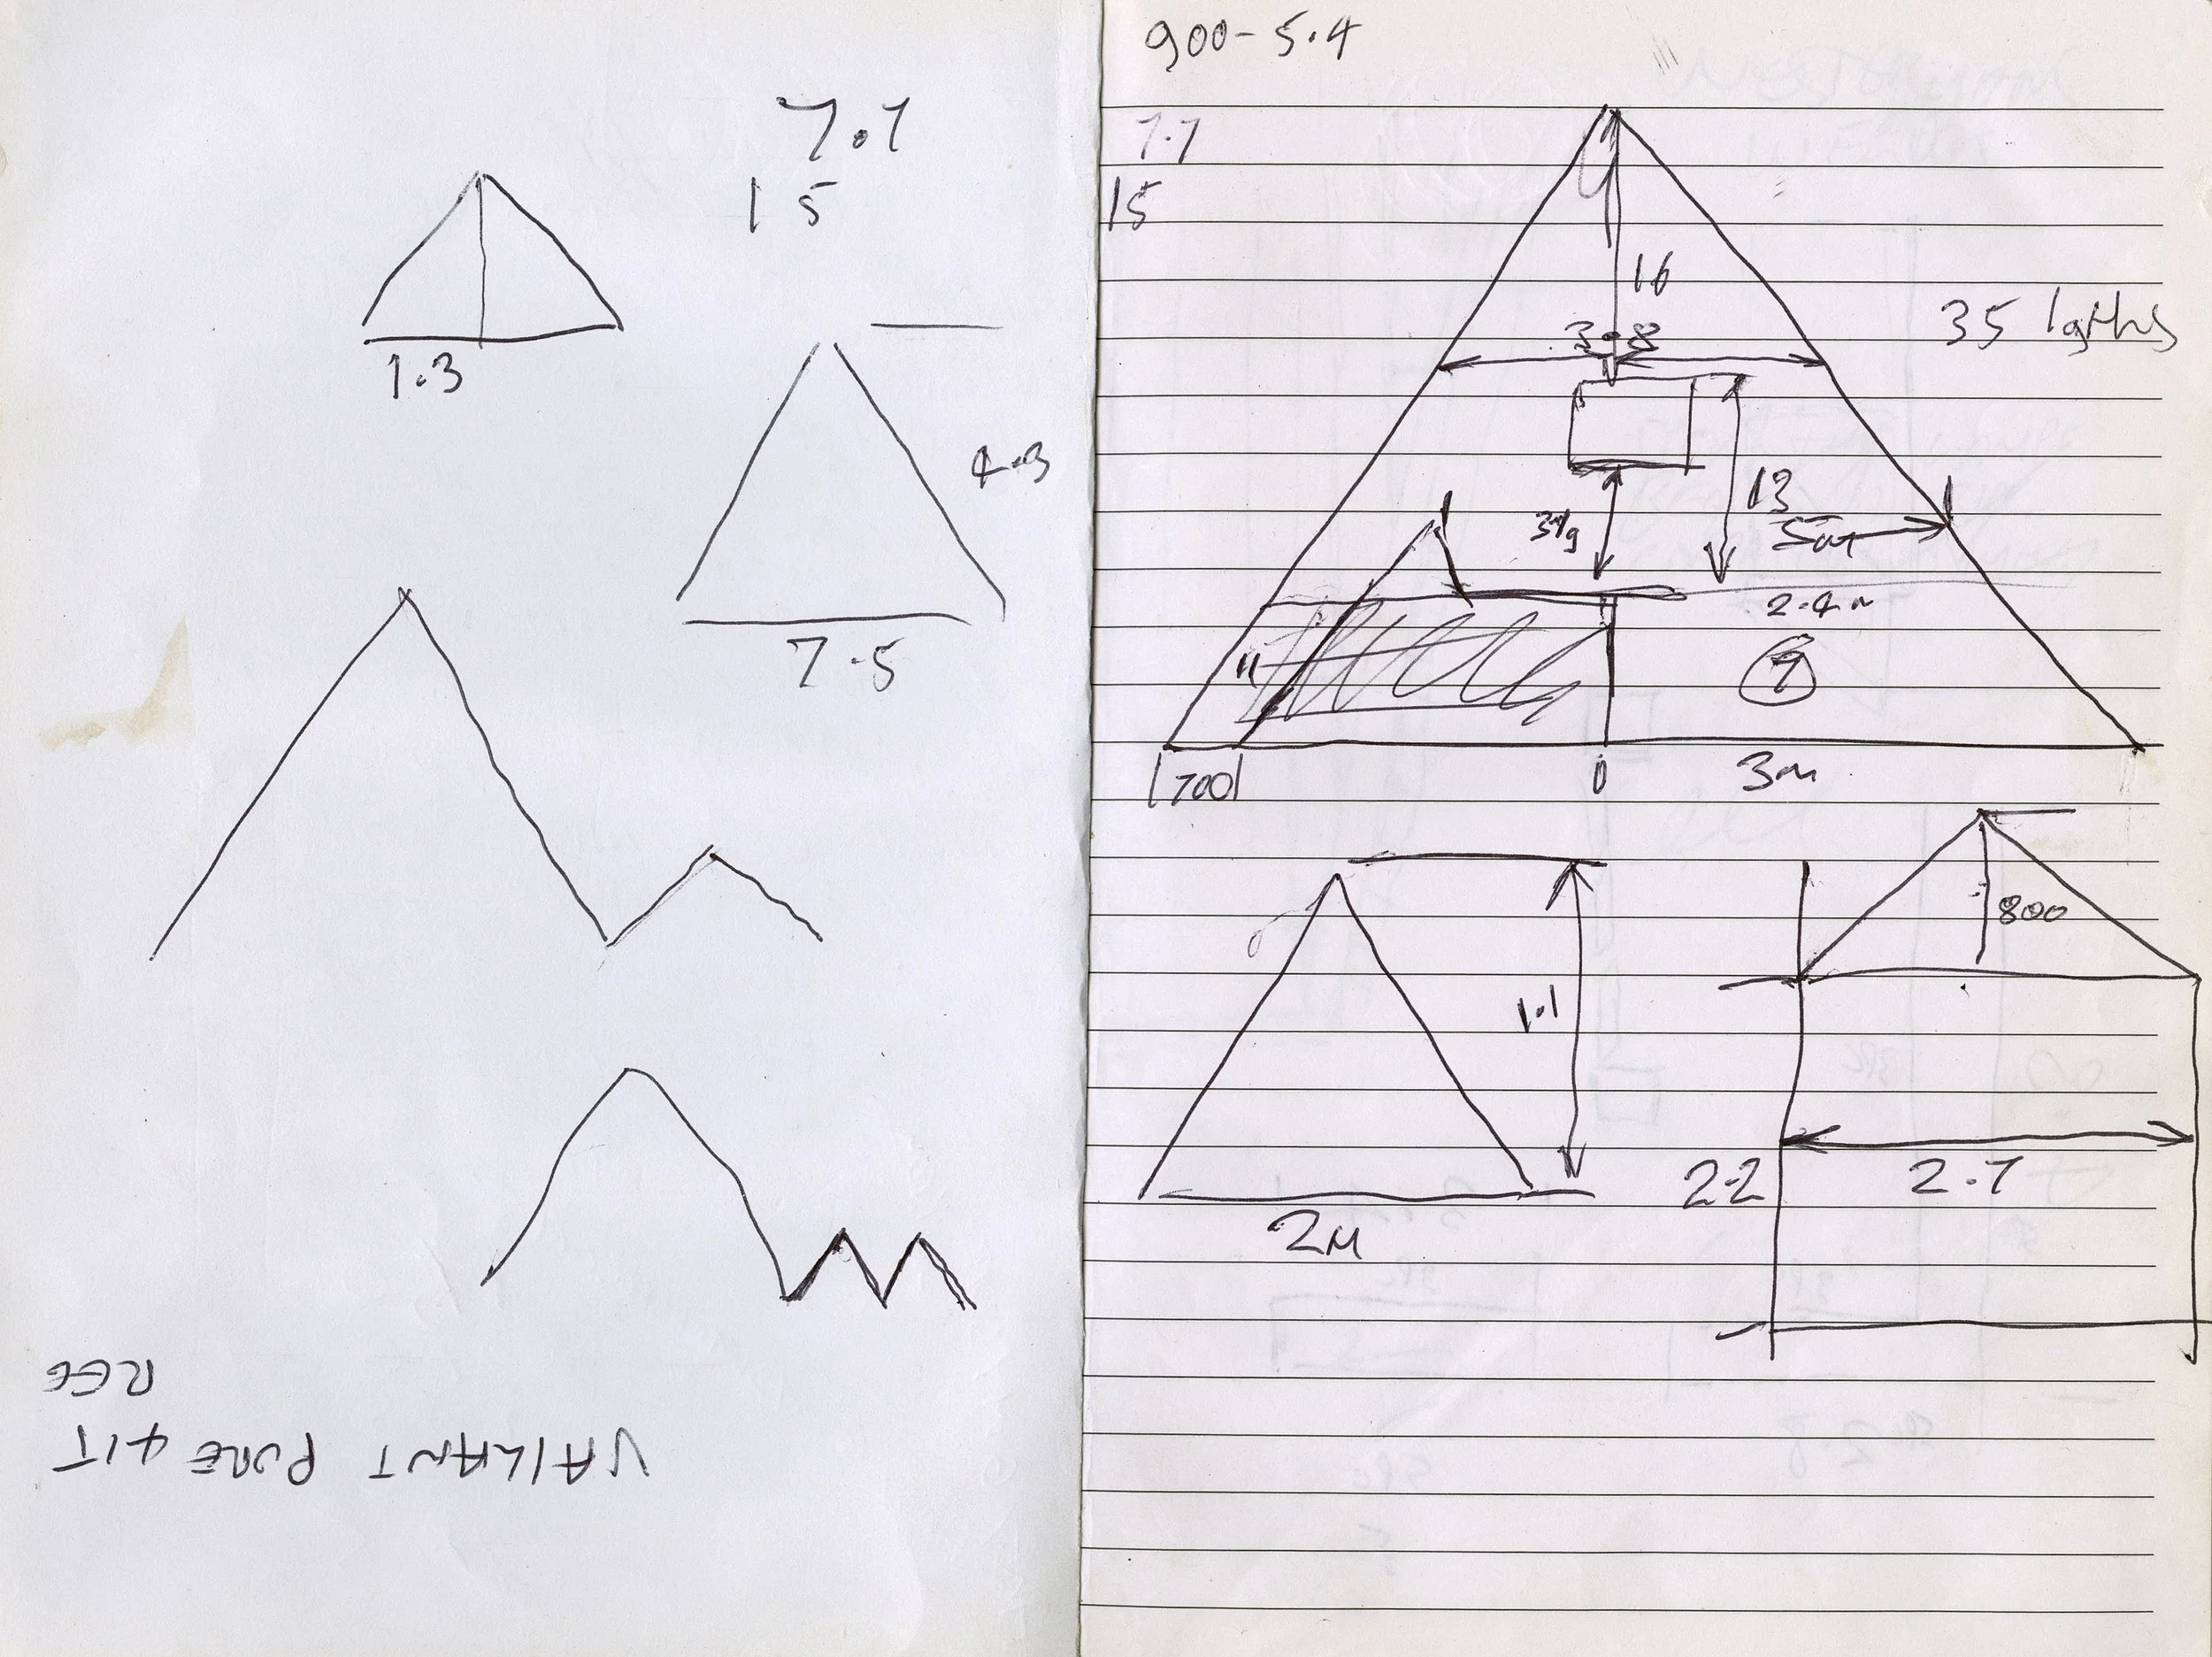 7.7
15
1.3
4.3
7.5
VAILIANT PURE 415
REG
900-5.4
7.7
15
16
35 lgths
3.8
13
3lg
5m
2.4m
11
9
700
0
3m
800
1.1
2.2
2.7
2M